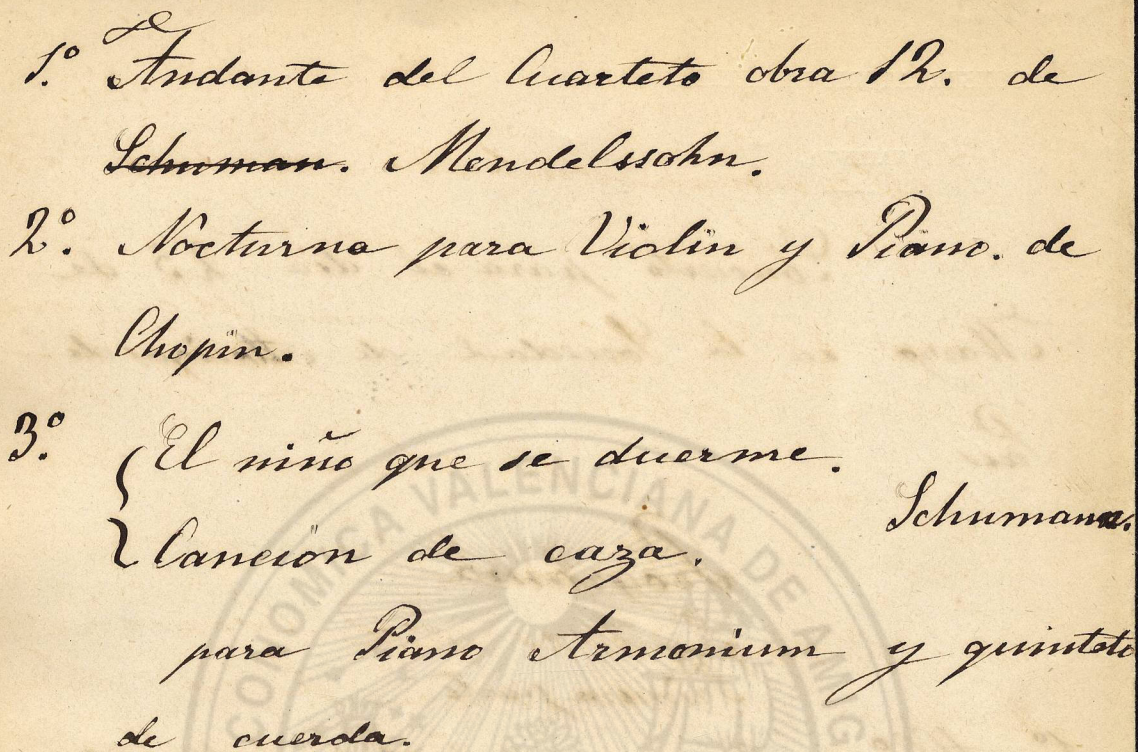 1.º Andante del Cuarteto obra 12. de
Schuman. Mendelssohn.
2.º Nocturno para Violin y Piano. de
Chopin.
3.º El niño que se duerme.
Schumann.
Cancion de caza.
para Piano Armonium y quinteto
de cuerda.
CONOMICA VALENCIANA DE AMIG